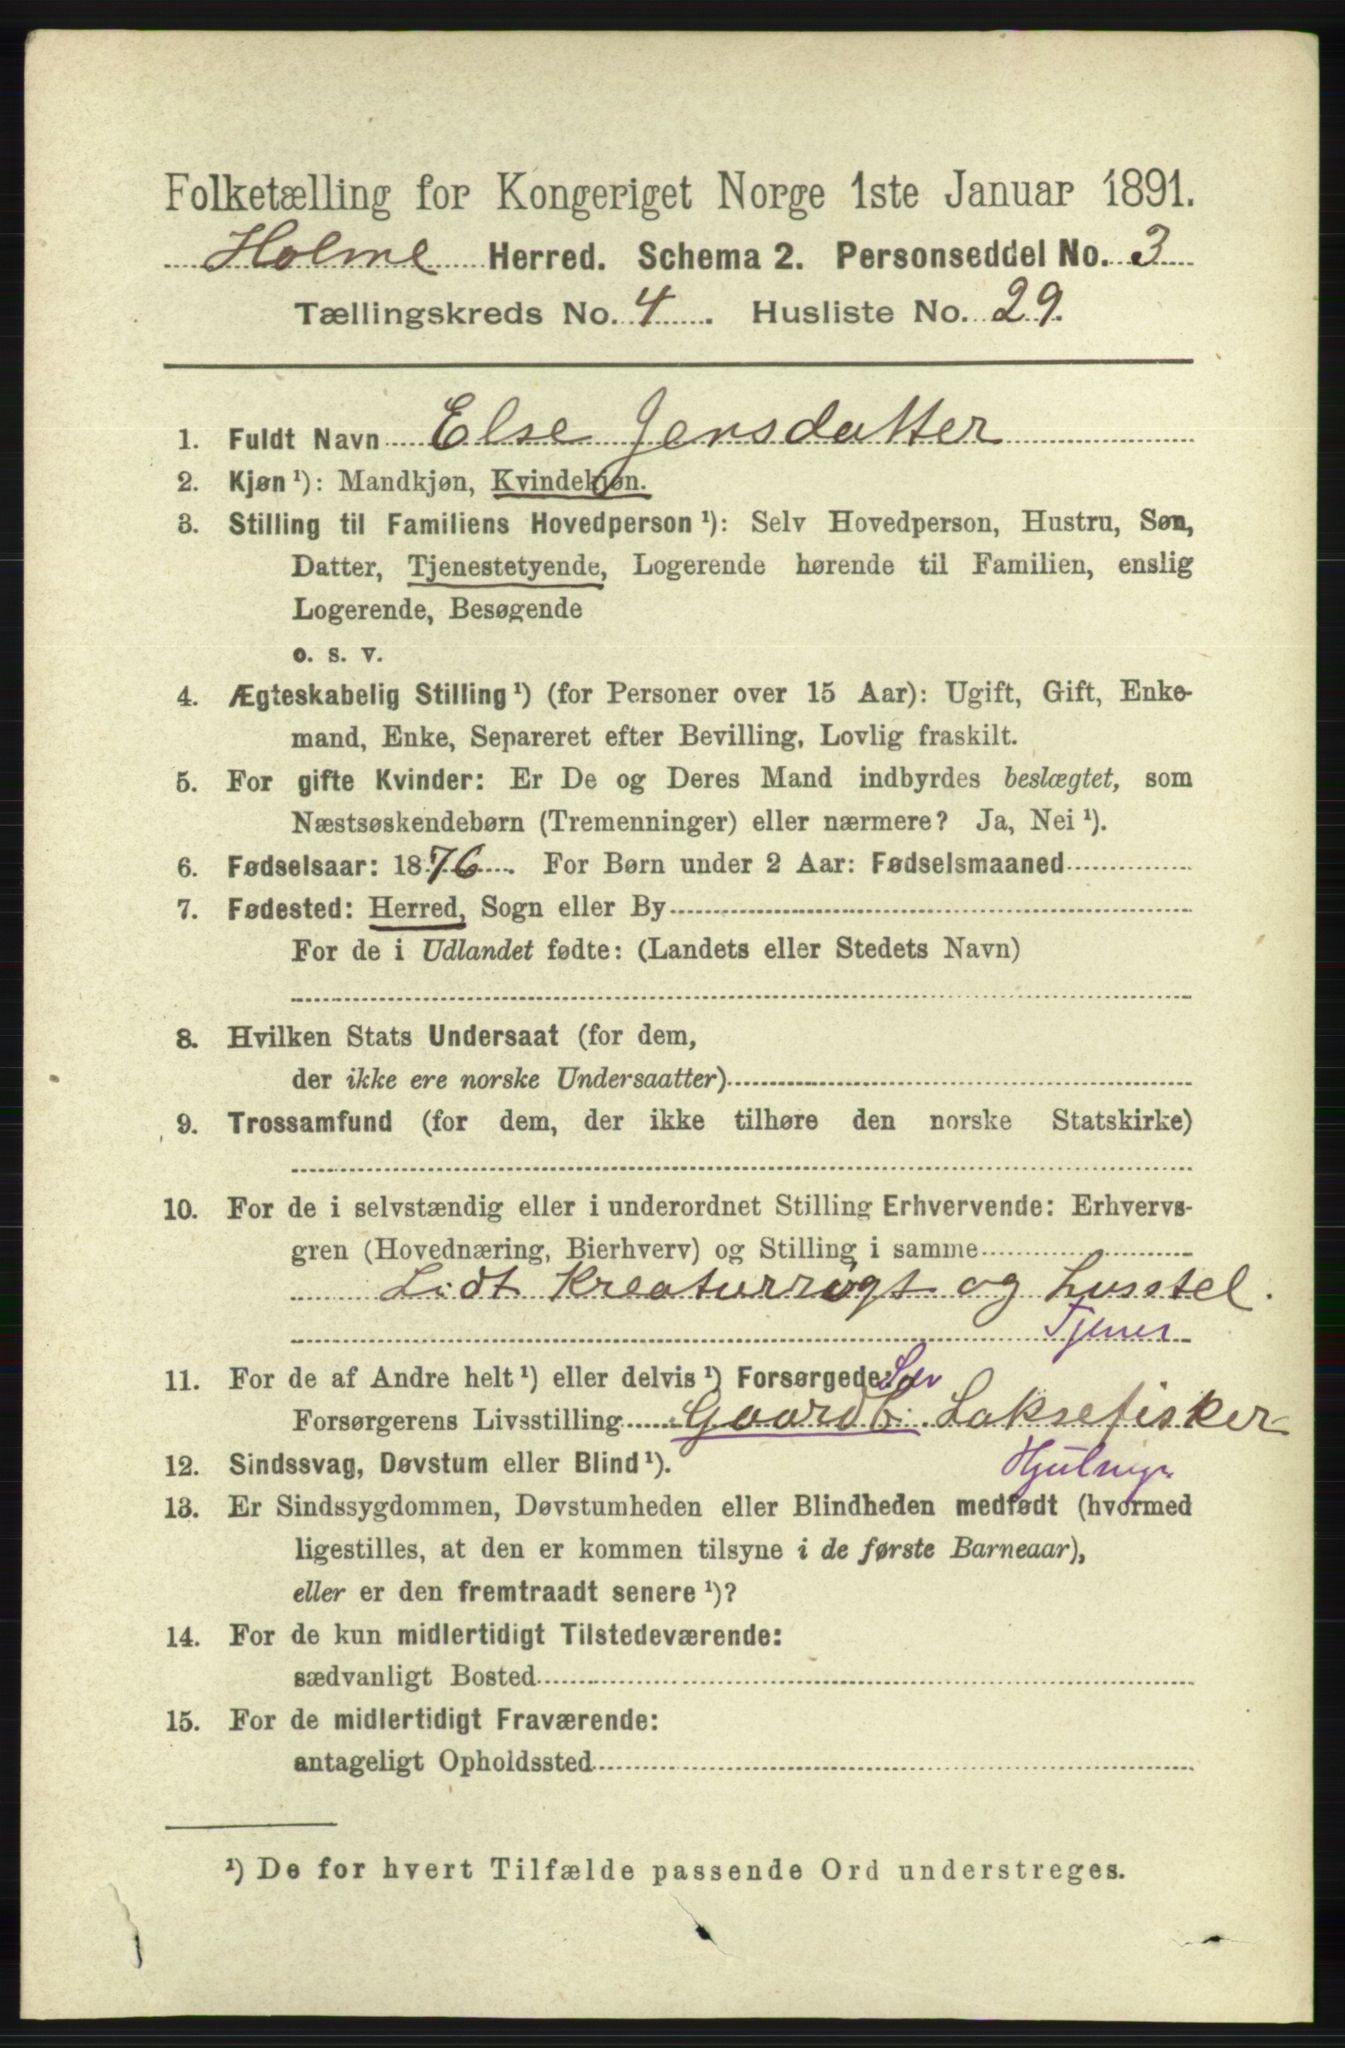 Folketælling for Kongeriget Norge 1ste Januar 1891.
Holme Herred. Schema 2. Personseddel No. 3
Tællingskreds No. 4. Husliste No. 29.
1. Fuldt Navn Else Jensdatter
2. Kjøn¹): Mandkjøn, Kvindekjøn.
3. Stilling til Familiens Hovedperson¹): Selv Hovedperson, Hustru, Søn,
Datter, Tjenestetyende, Logerende hørende til Familien, enslig
Logerende, Besøgende
o. s. v.
4. Ægteskabelig Stilling¹) (for Personer over 15 Aar): Ugift, Gift, Enke-
mand, Enke, Separeret efter Bevilling, Lovlig fraskilt.
5. For gifte Kvinder: Er De og Deres Mand indbyrdes beslægtet, som
Næstsøskendebørn (Tremenninger) eller nærmere? Ja, Nei¹).
6. Fødselsaar: 1876. For Børn under 2 Aar: Fødselsmaaned
7. Fødested: Herred, Sogn eller By
For de i Udlandet fødte: (Landets eller Stedets Navn)
8. Hvilken Stats Undersaat (for dem,
der ikke ere norske Undersaatter)
9. Trossamfund (for dem, der ikke tilhøre den norske Statskirke)
10. For de i selvstændig eller i underordnet Stilling Erhvervende: Erhvervs-
gren (Hovednæring, Bierhverv) og Stilling i samme
Lidt Kreaturrøgt og husstel.
Tjener
11. For de af Andre helt¹) eller delvis¹) Forsørgede:
Forsørgerens Livsstilling Gaardb. Laksefisker
12. Sindssvag, Døvstum eller Blind¹).
13. Er Sindssygdommen, Døvstumheden eller Blindheden medfødt (hvormed
ligestilles, at den er kommen tilsyne i de første Barneaar),
eller er den fremtraadt senere¹)?
14. For de kun midlertidigt Tilstedeværende:
sædvanligt Bosted
15. For de midlertidigt Fraværende:
antageligt Opholdssted
¹) De for hvert Tilfælde passende Ord understreges.